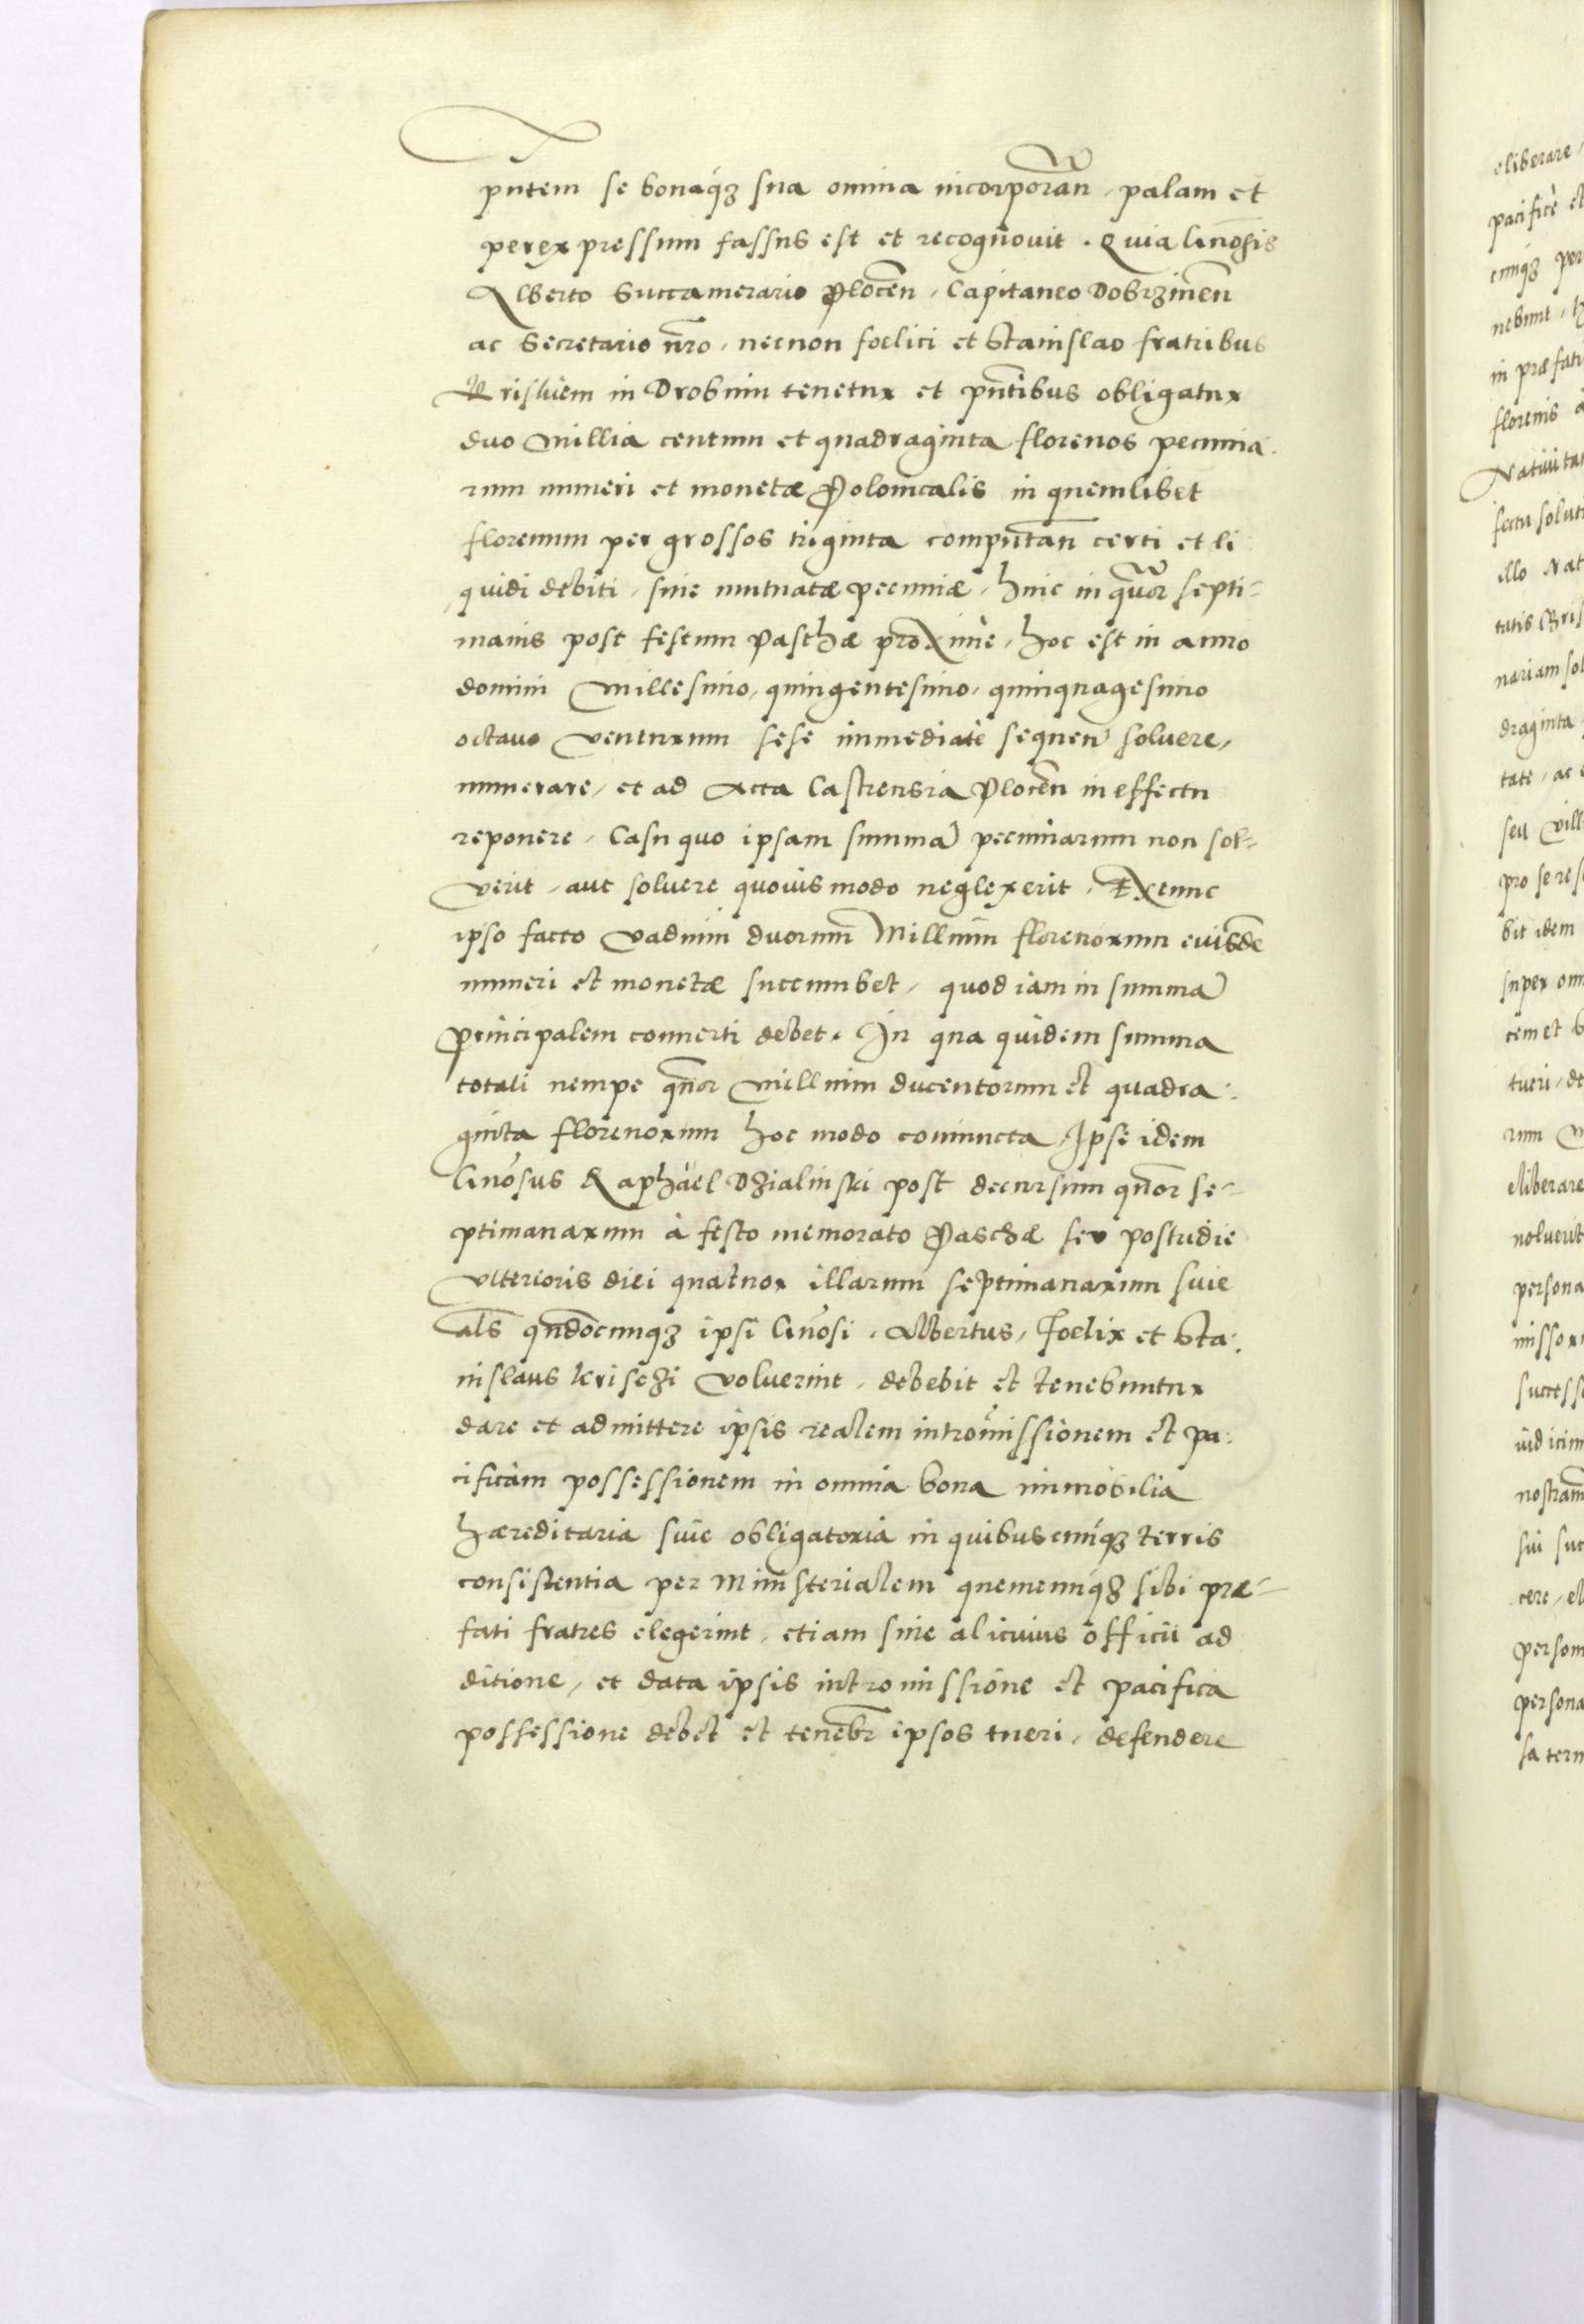 pntem se bonaq́ꝫ sua omnia incorporan̄, palam et
perexpressum fassus est et recogn̄ouit. Quia Gn̄osis
Alberto Succamerario Ploceń, Capitaneo Dobrzineń
ac Secretario n̄ro, necnon foelici et Stanislao fratribus
Kriskiem in Drobnin tenetur et pn̄tibus obligatur
duo Millia centum et quadraginta florenos pecunia.
rum numeri et monetæ Polonicalis in quemlibet
florenum per grossos triginta computan̄ certi et li
quidi debiti, siue mutuatæ pecuniæ, hinc in qūor septi-
manis post festum Paschæ proximè, hoc est in anno
domini Millesimo, quingentesimo, quinquagesimo
octauo Venturum sese immediatè sequen̄ soluere,
numerare, et ad Acta Castrensia Ploceń in effectu
reponere, Casu quo ipsam summā pecuniarum non sol-
verit, aut soluere quouismodo neglexerit, Extunc
ipso facto Vadium duorum Millium florenorum euisdē
numeri et monetæ succumbet, quod iam in summā
principalem conuerti debet. In qua quidem summa
totali nempe qūor Millium ducentorum et quadra.
ginta florenorum hoc modo coniuncta, Ipse idem
Gn̄osus Raphäel Dzialinski post decursum qūor se-
ptimanarum à festo memorato Paschæ seu postridie
Vlterioris diei quatuor illarum septimanarum siue
als̄ qn̄docunqꝫ ipsi Gn̄osi, Albertus, Foelix et Sta.
nislaus Krisczi Voluerint, debebit et tenebuntur
dare et admittere ipsis realem intromissionem et pa.
cificam possessionem in omnia bona immobilia
hæreditaria siue obligatoria in quibuscunq́ꝫ terris
consistentia per Ministerialem quemcunq́ꝫ sibi præ-
fati fratres elegerint, etiam sine alicuius officii ad
ditione, et data ipsis intromissione et pacifica
possessione debet et teneb̄r ipsos tueri, defendere
eliberare,
pacificè et
cunq́ꝫ per
nebunt,
in præfati
florenis
Natiuita
fectu soluti
illo Nat
tatis
nariam sol
draginta
tate, ac
seu Vill
pro se res
bit idem
super om
cem et b
tueri, de
rum
eliberare
noluerit
persona
missor
success
iudicium
nostram
siu suc
cere, el
person
persona
sa term